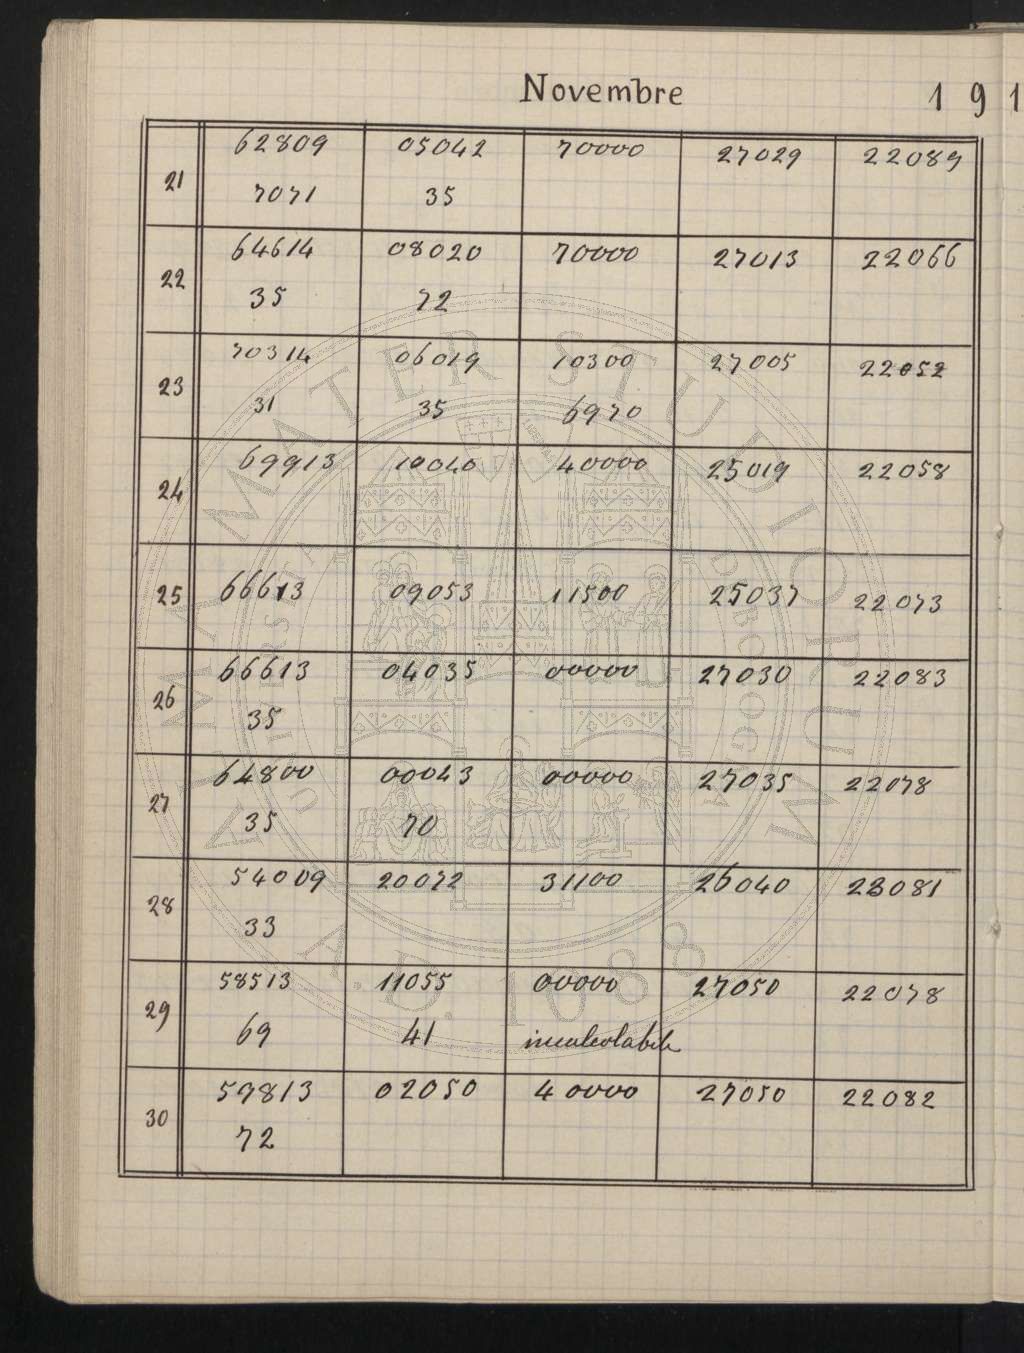 Novembre 191
21 62809 05042 70000 27029 22089
7071 35
22 64614 08020 70000 27013 22066
35 72
23 70314 06019 10300 27005 22052
31 35 6970
24 69913 10040 40000 25019 22058
25 66613 09053 11500 25037 22073
26 66613 04035 00000 27030 22083
35
27 64800 00043 00000 27035 22078
35 70
28 54009 20072 31100 26040 23081
33
29 58513 11055 00000 27050 22078
69 41 incalcolabile
30 59813 02050 40000 27050 22082
72
ALMA MATER STUDIORUM
A.D. 1088